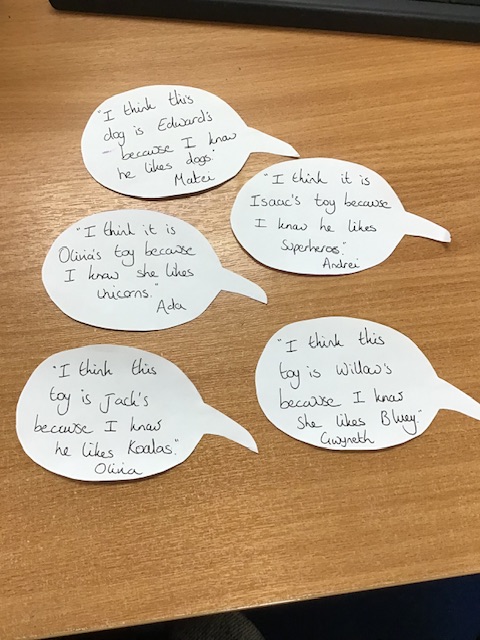 "I think this
dog is Edward's
- because I know
he likes dogs."
Matei
"I think it is
Isaac's toy because
I know he likes
Superheros."
Andrei
"I think it is
Olivia's toy because
I know she likes
Unicorns."
Ada
"I think this
toy is Willow's
because I know
She likes Bluey."
Gwyneth
"I think this
toy is Jack's
because I know
he likes Koalas."
Olivia